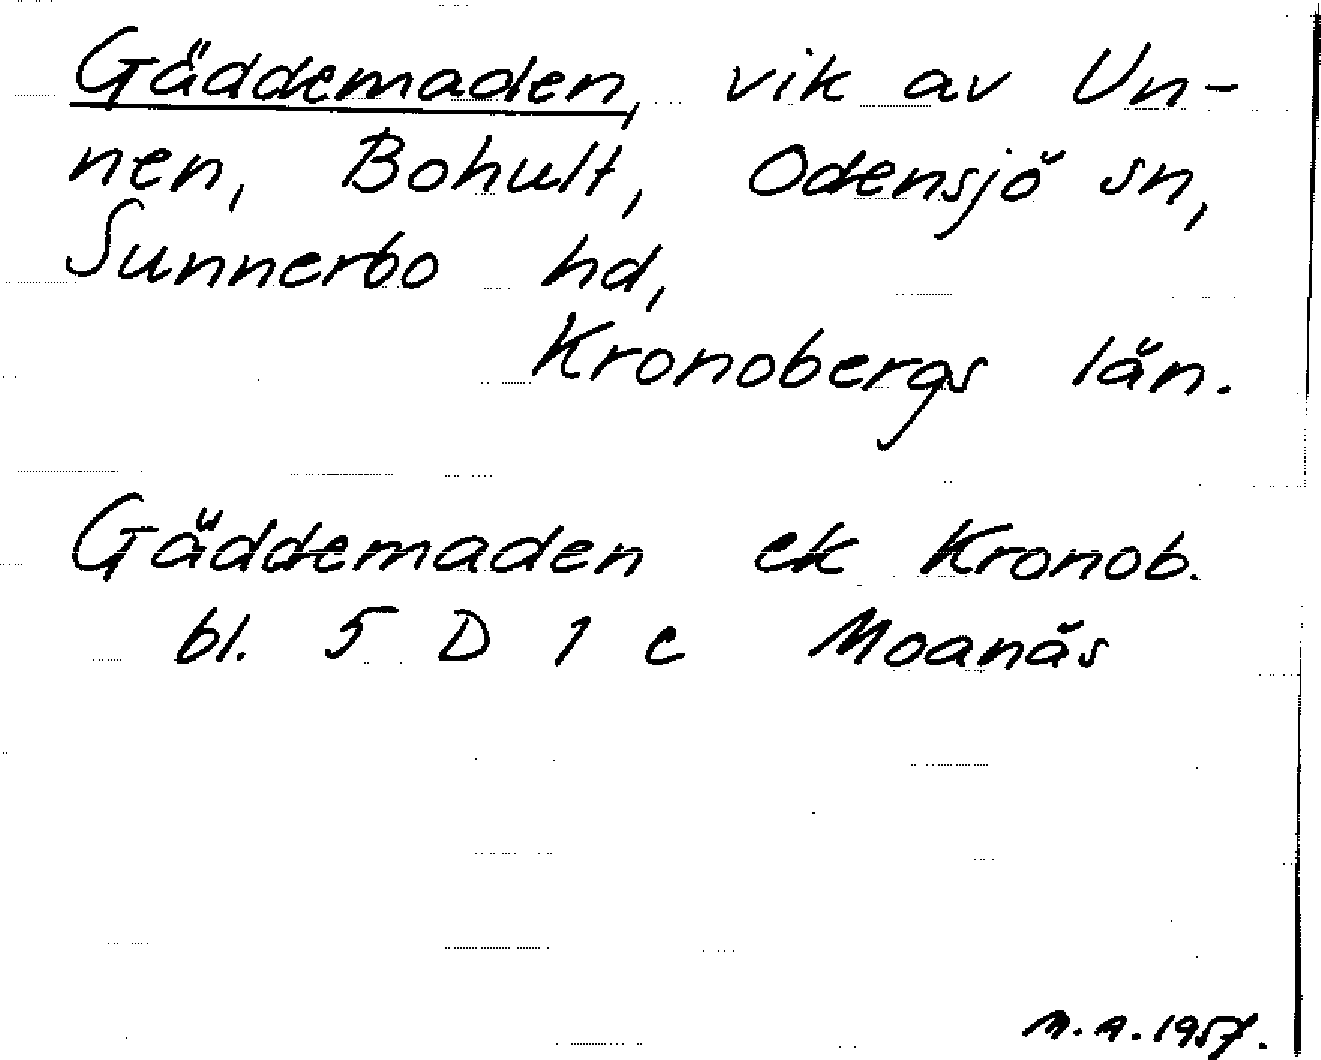 Gäddemaden, vik av Un-
nen, Bohult, Odensjö sn,
Sunnerbo hd,
Kronobergs län.
Gäddemaden ek Kronob.
bl. 5 D 1 c Moanäs
M. A. 1957.